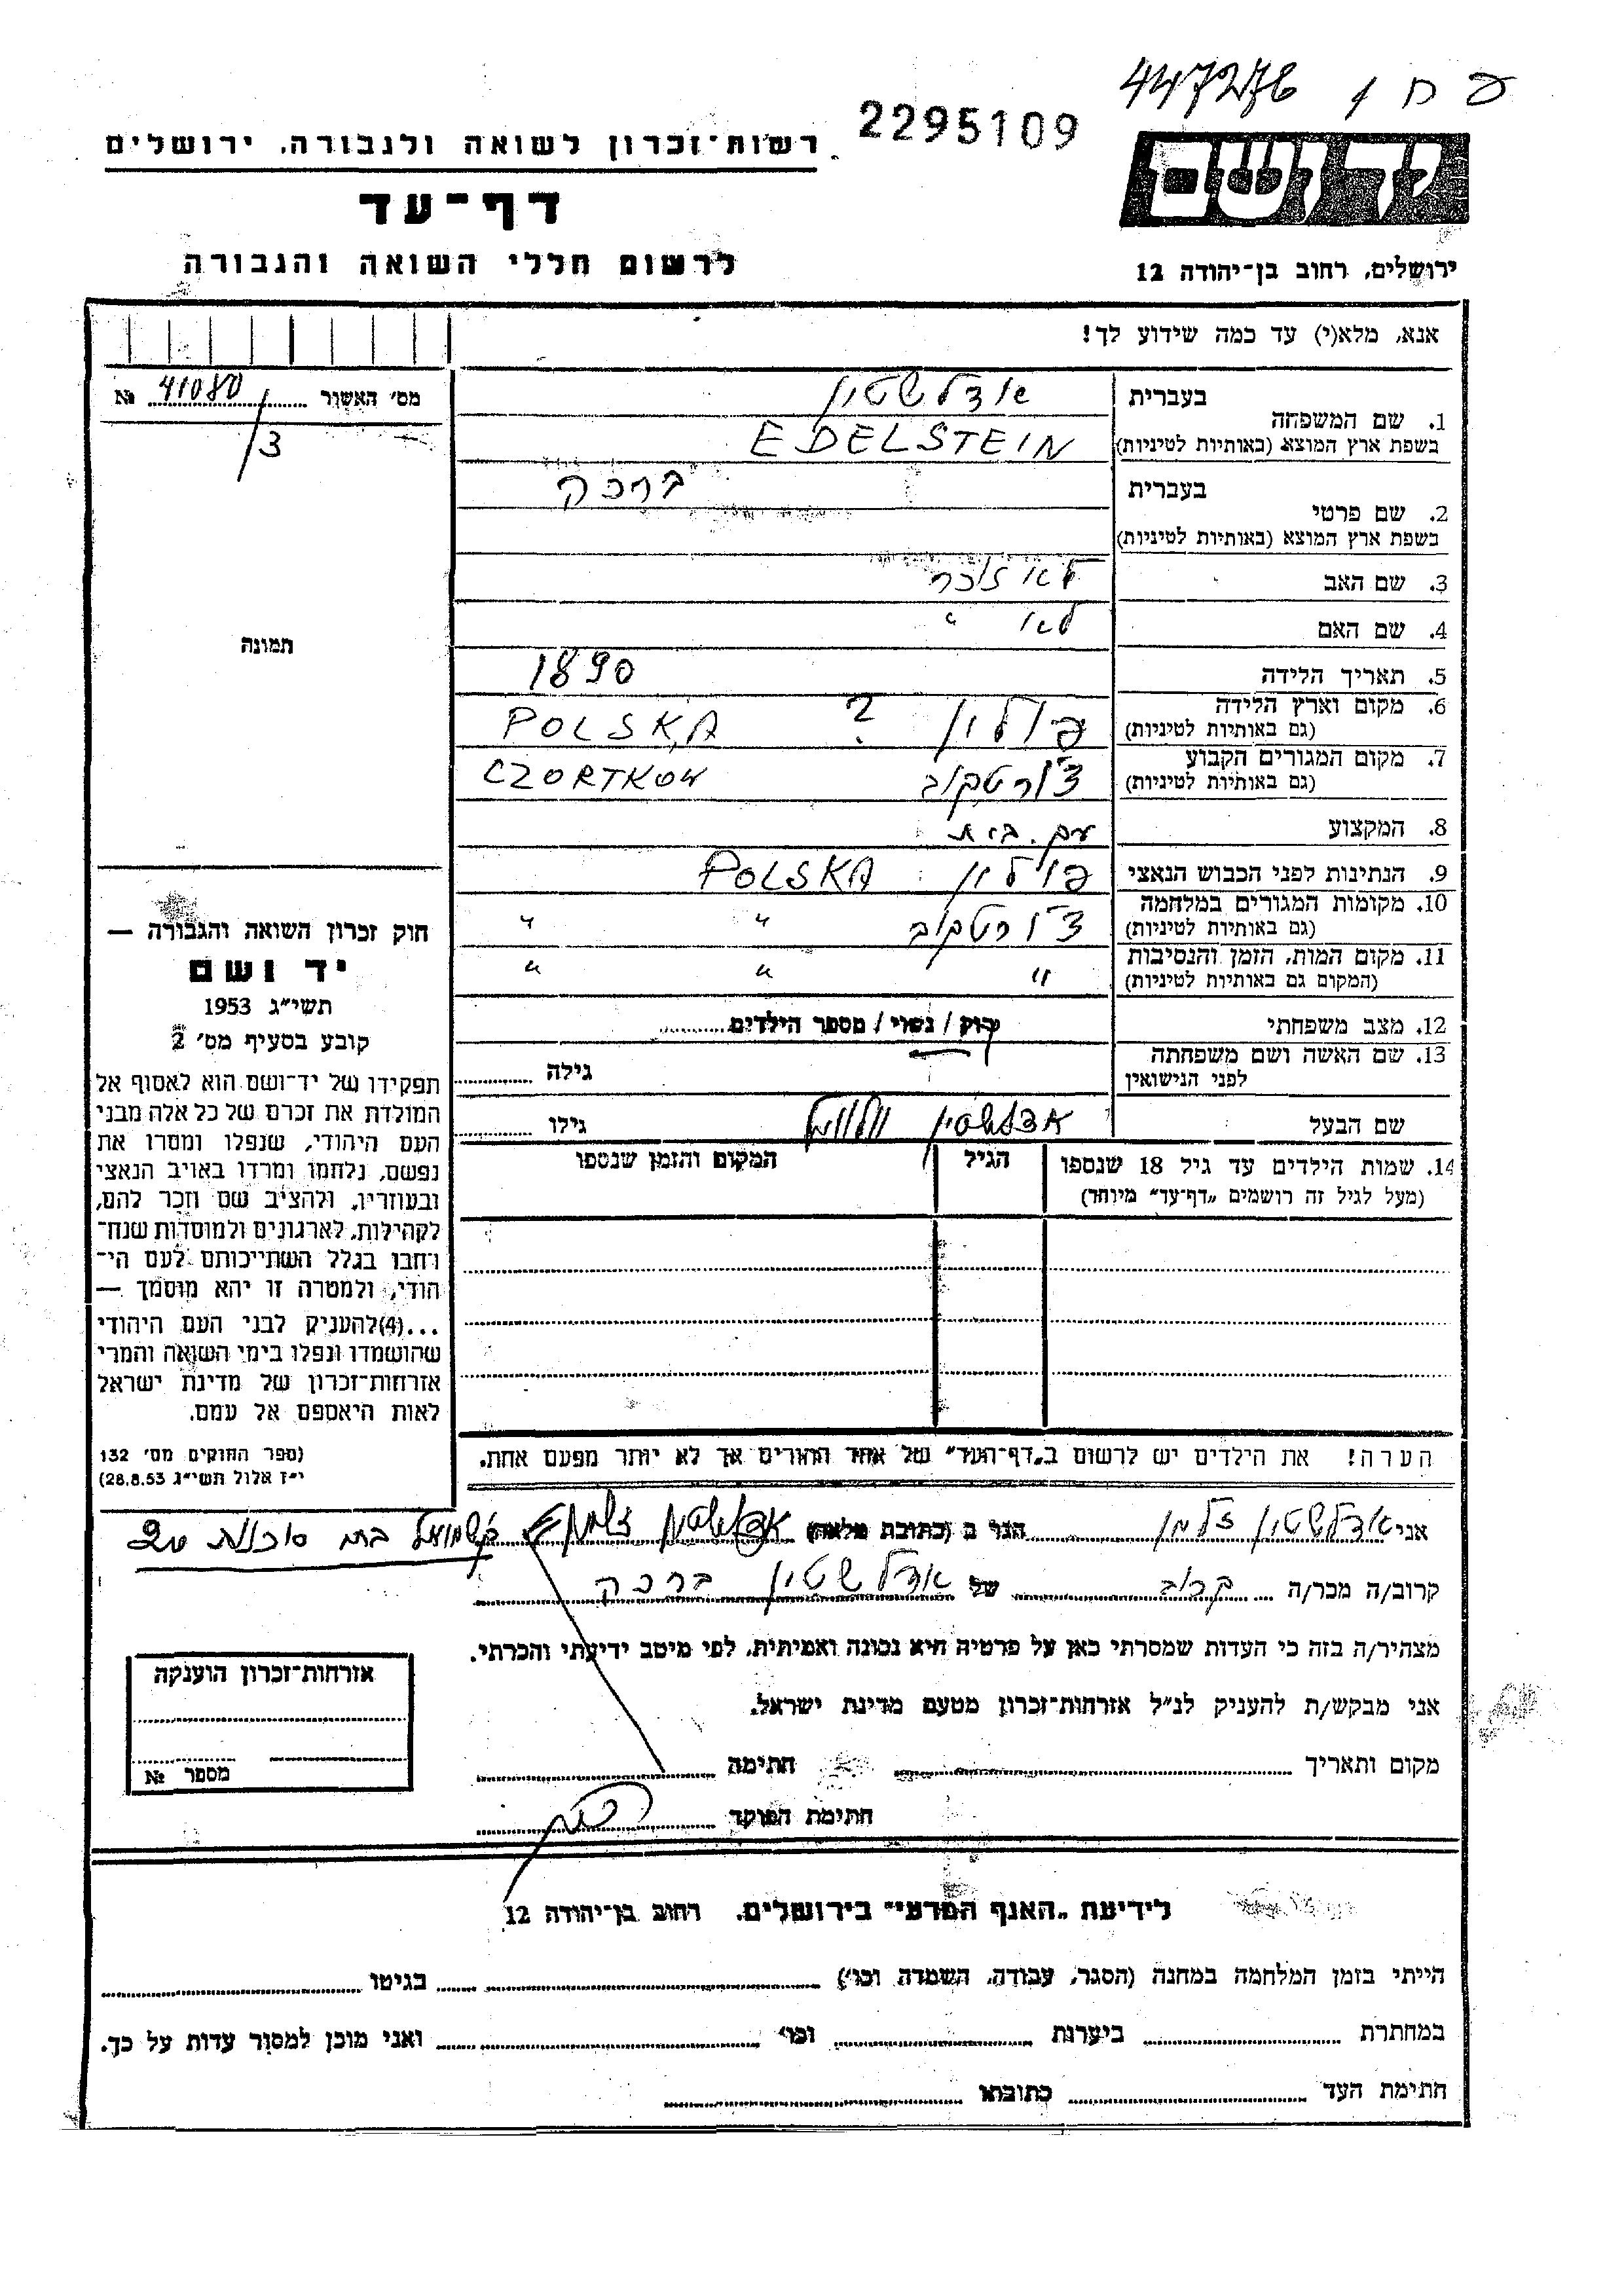 447276
2295109
רשות־זכרון לשואה ולגבורה, ירושלים
יד ושם
דף־עד
לרשום חללי השואה והגבורה
ירושלים, רחוב בן־יהודה 12
אנא, מלא(י) עד כמה שידוע לך!
מס' האשור 41080 №
/3
תמונה
1. שם המשפחה
בעברית אידלשטין
בשפת ארץ המוצא (באותיות לטיניות) EDELSTEIN
2. שם פרטי
בעברית ברכה
בשפת ארץ המוצא (באותיות לטיניות)
3. שם האב לא זוכר
4. שם האם לא "
5. תאריך הלידה 1890
6. מקום וארץ הלידה
(גם באותיות לטיניות) פולין ? POLSKA
7. מקום המגורים הקבוע
(גם באותיות לטיניות) צ'ורטקוב CZORTKOW
8. המקצוע עק. בית
9. הנתינות לפני הכבוש הנאצי פולין POLSKA
10. מקומות המגורים במלחמה
(גם באותיות לטיניות) צ'ורטקוב " "
11. מקום המות, הזמן והנסיבות
(המקום גם באותיות לטיניות) " " "
12. מצב משפחתי רוק / נשוי / מספר הילדים
13. שם האשה ושם משפחתה
לפני הנישואין גילה
שם הבעל אדלשטין גילו
14. שמות הילדים עד גיל 18 שנספו
(מעל לגיל זה רושמים „דף־עד" מיוחד)
הגיל
המקום והזמן שנספו
חוק זכרון השואה והגבורה —
יד ושם
תשי"ג 1953
קובע בסעיף מס' 2
תפקידו של יד־ושם הוא לאסוף אל
המולדת את זכרם של כל אלה מבני
העם היהודי, שנפלו ומסרו את
נפשם, נלחמו ומרדו באויב הנאצי
ובעוזריו, ולהציב שם וזכר להם,
לקהילות, לארגונים ולמוסדות שנח־
רבו בגלל השתייכותם לעם הי־
הודי, ולמטרה זו יהא מוסמך —
...(4)להעניק לבני העם היהודי
שהושמדו ונפלו בימי השואה והמרי
אזרחות־זכרון של מדינת ישראל
לאות היאספם אל עמם.
(ספר החוקים מס' 132
י"ז אלול תשי"ג 28.8.53)
הערה! את הילדים יש לרשום ב„דף־העד" של אחד ההורים אך לא יותר מפעם אחת.
אני אידלשטין זלמן הגר ב (כתובת מלאה) אדלשטין זלמן בת
קרוב/ה מכר/ה קרוב של אידלשטין ברכה
מצהיר/ה בזה כי העדות שמסרתי כאן על פרטיה היא נכונה ואמיתית, לפי מיטב ידיעתי והכרתי.
אני מבקש/ת להעניק לנ"ל אזרחות־זכרון מטעם מדינת ישראל.
מקום ותאריך חתימה
חתימת הפוקד
אזרחות־זכרון הוענקה
מספר №
לידיעת „האגף המדעי" בירושלים, רחוב בן־יהודה 12
הייתי בזמן המלחמה במחנה (הסגר, עבודה, השמדה וכו') בגיטו
במחתרת ביערות וכו' ואני מוכן למסור עדות על כך.
חתימת העד כתובתו